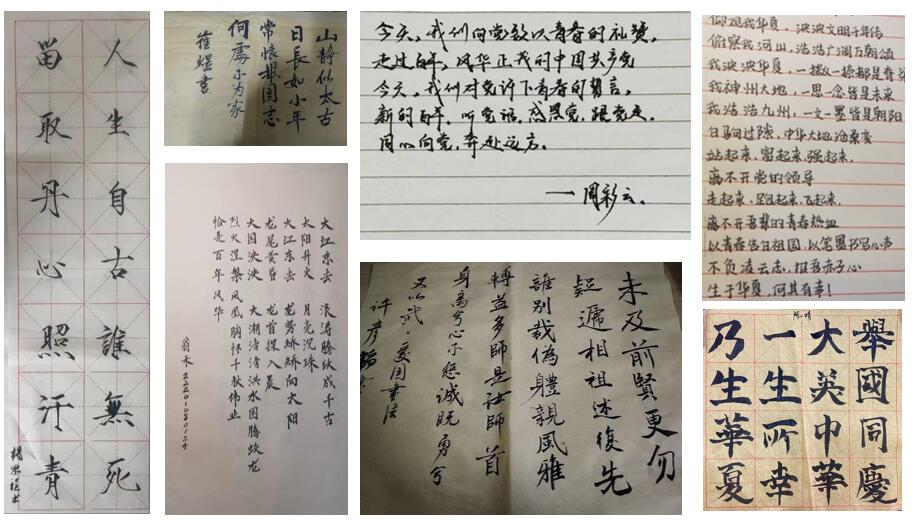 人生自古誰無死
留取丹心照汗青
山静似太古
日長如小年
常懷報国志
何處不为家
崔煜書
今天，我们向党致以青春的礼赞，
走过百年，风华正茂的中国共产党
今天，我们对党许下青春的誓言，
新的百年，听党话，感党恩，跟党走，
同心向党，奔赴远方。
一周彩云
仰观我华夏，泱泱文明千年传
俯察我河山，浩浩广阔万朝颂
我泱泱华夏，一撇一捺都是脊梁
我神州大地，一思一念皆是未来
我浩浩九州，一文一墨皆是朝阳
白驹过隙，中华大地沧桑变
站起来，富起来，强起来，
离不开党的领导
走起来，跑起来，飞起来，
离不开吾辈的青春热血
以青春告白祖国，以笔墨书写心声
不负凌云志，报吾赤子心
生于华夏，何其有幸！
大江东去 浪涛腾纹成千古
太阳升火 月亮沉珠
大江东去 龙势矫矫向太阳
龙尾黄昏 龙首探入晨
大国泱泱 大潮滂滂洪水图腾蛟龙
烈火涅槃凤凰胸怀千秋伟业
恰是百年风华
2220180124
未及前賢更勿
疑遞相祖述復先
誰別裁偽體親風雅
轉益多師是汝師 首
身离兮心不懲诚既勇兮
又以武·爱国書法
许彦
舉國同慶
大美中華
一生所幸
乃生華夏